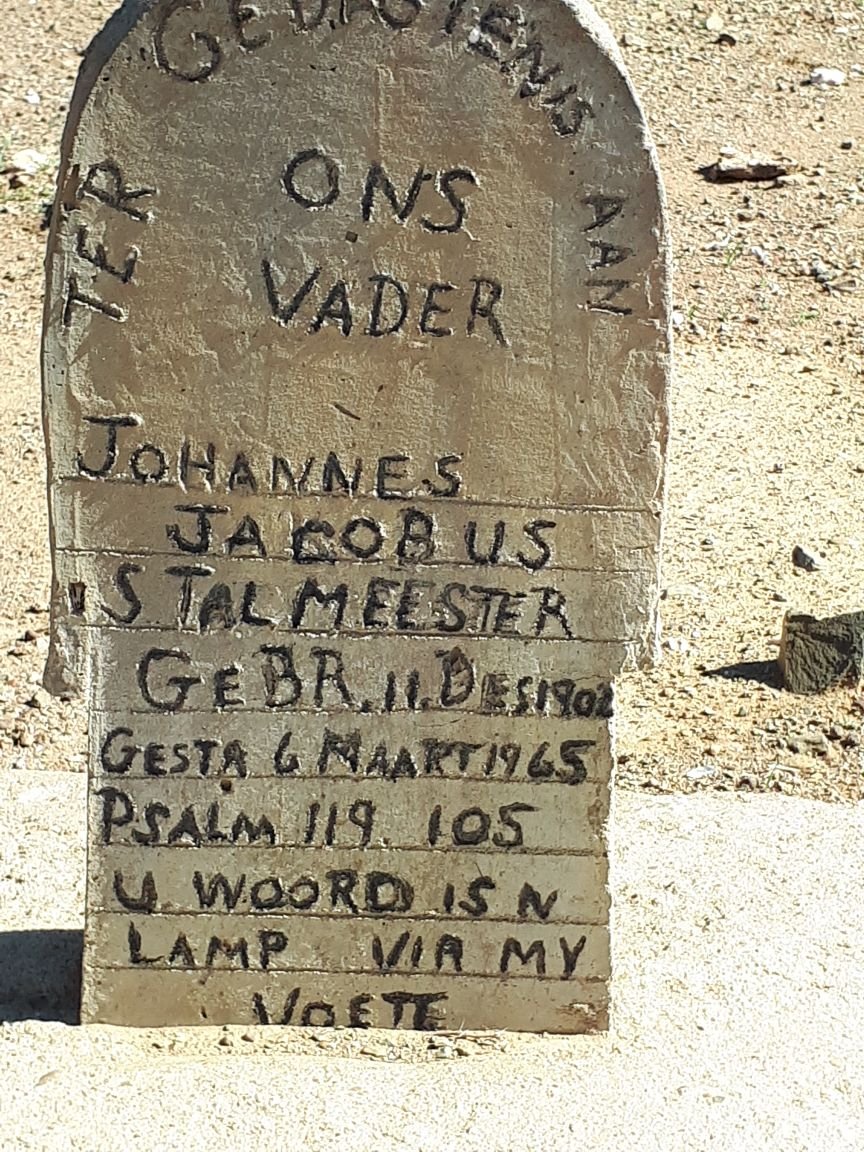 TER GEDAGTENIS AAN
ONS
VADER
JOHANNES
JACOBUS
STALMEESTER
GEBR. 11. DES 1902
GESTA 6 MAART 1965
PSALM 119 105
U WOORD IS N
LAMP VIR MY
VOETE